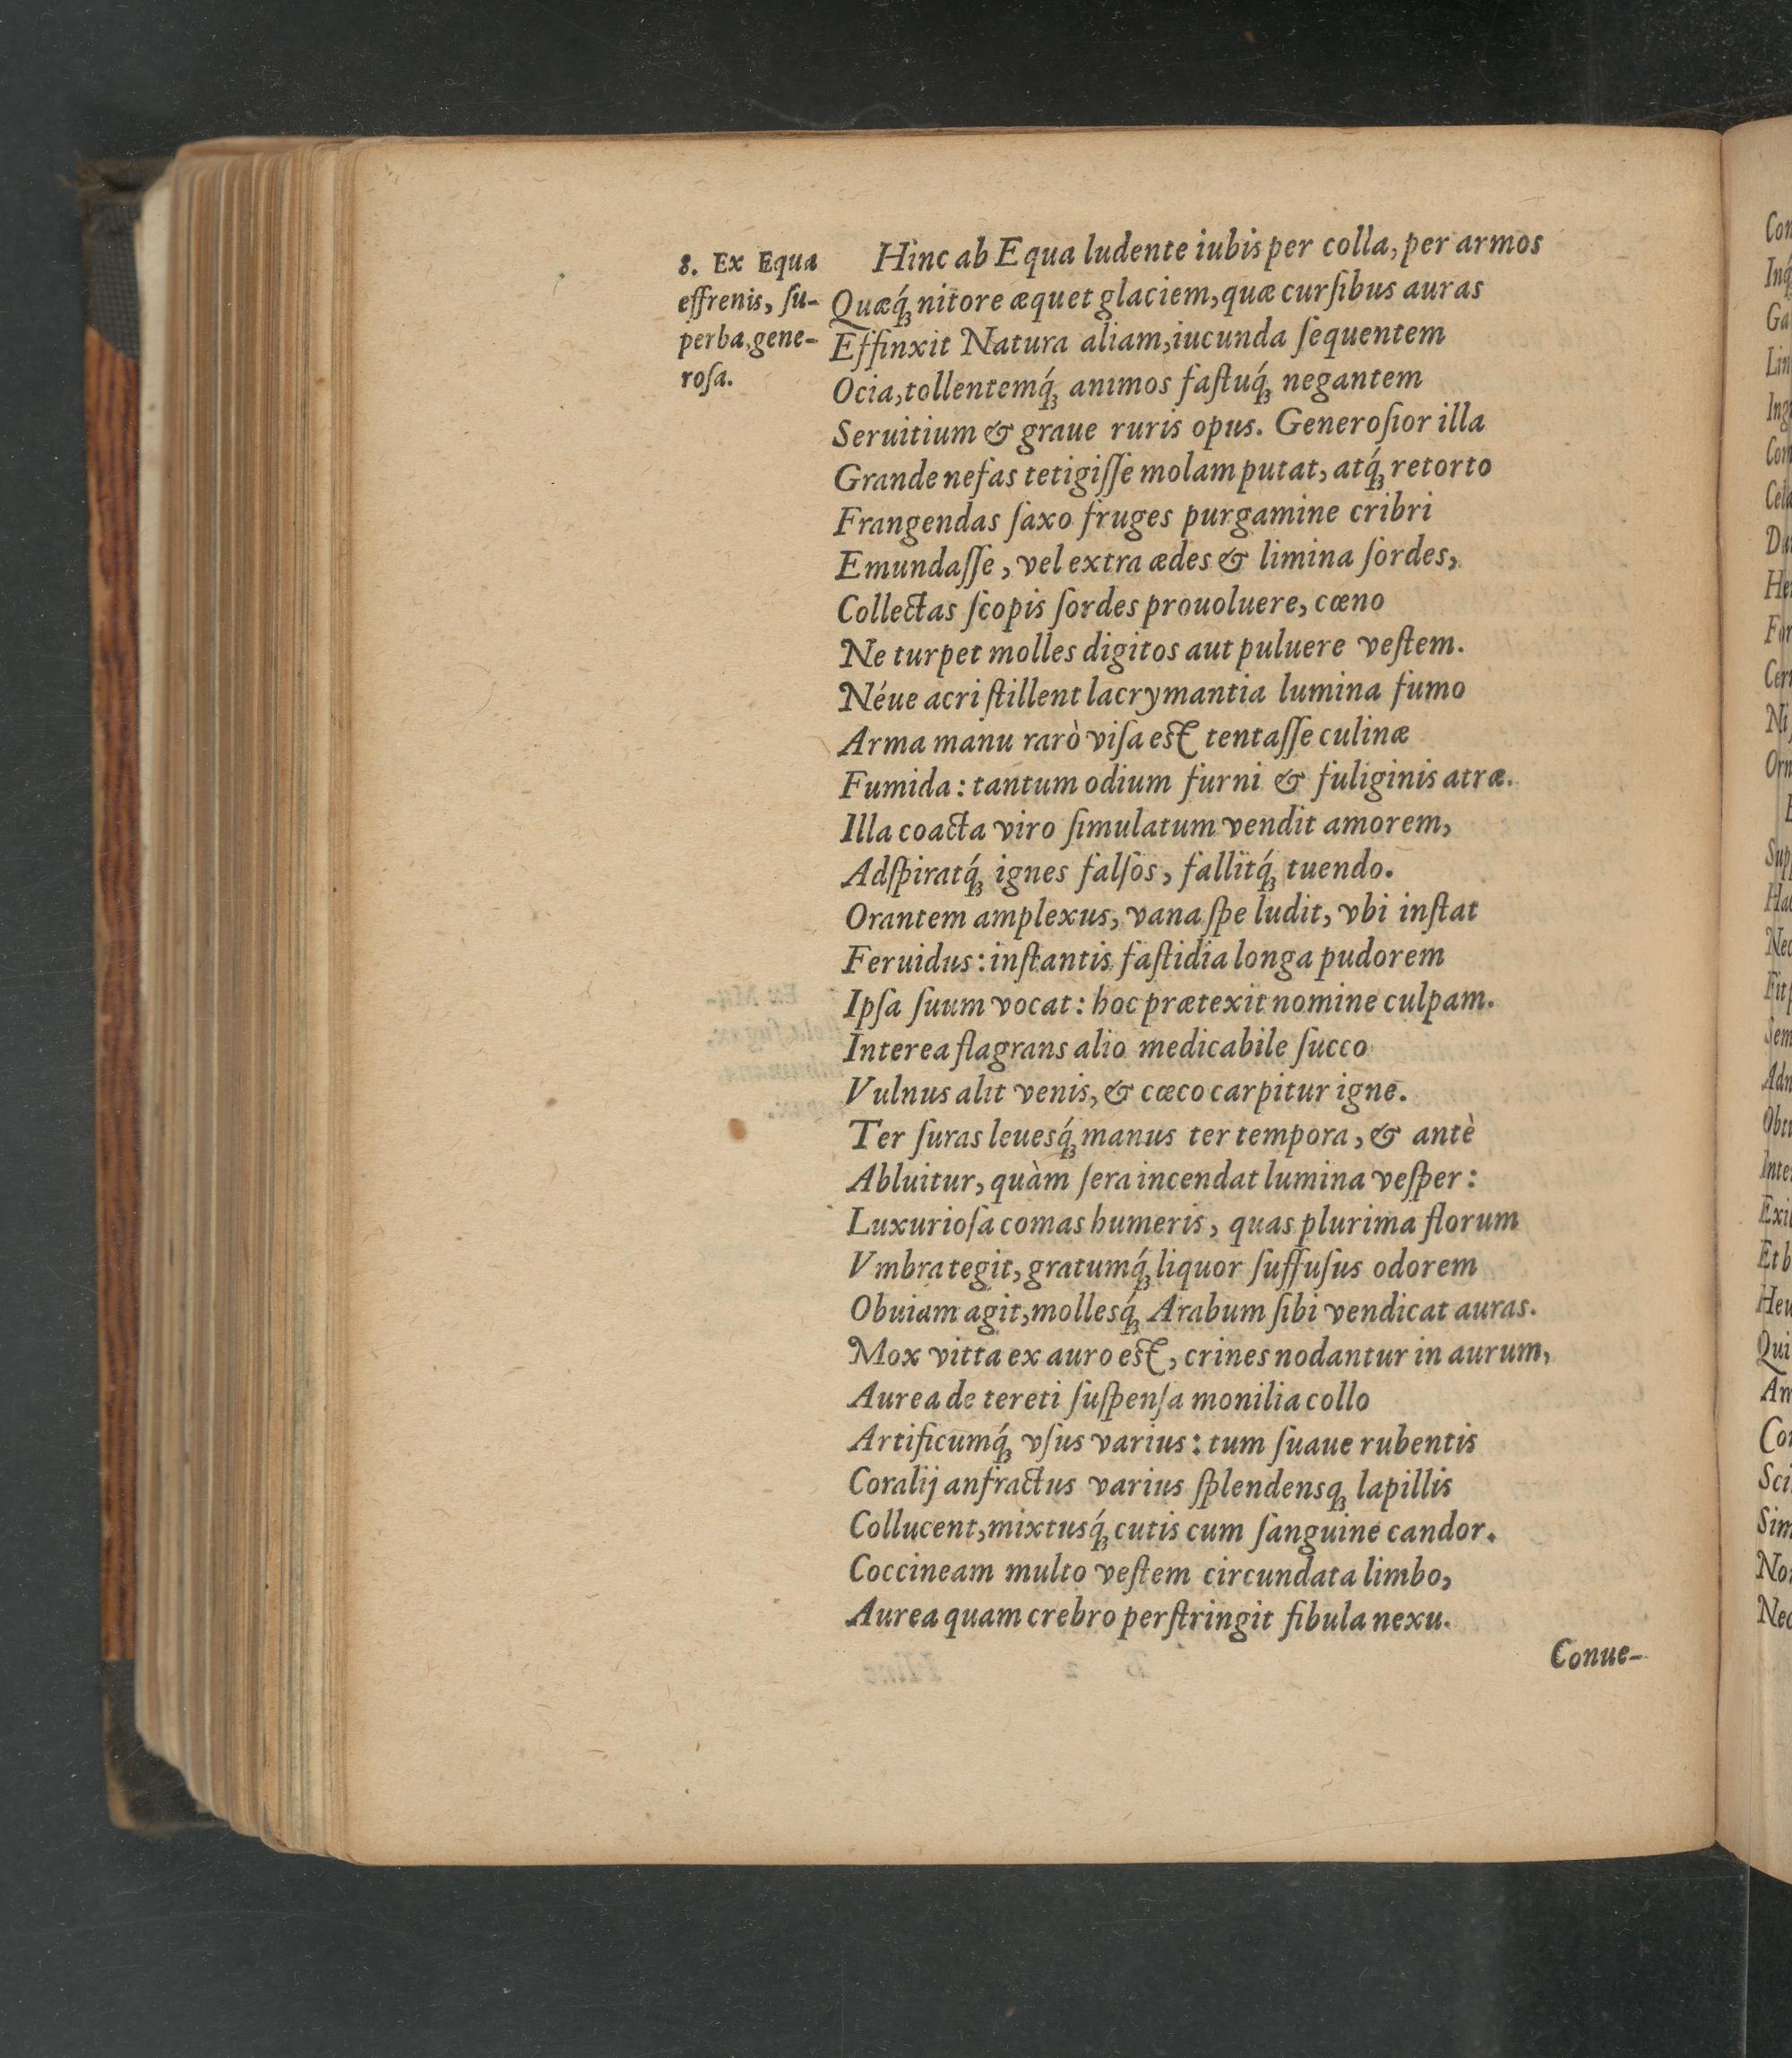 8. Ex Equa
effrenis, ſu-
perba, gene-
roſa.
Hinc ab Equa ludente iubis per colla, per armos
Quæq́ꝫ nitore æquet glaciem, quæ curſibus auras
Effinxit Natura aliam, iucunda ſequentem
Ocia, tollentemq́ꝫ animos faſtuq́ꝫ negantem
Seruitium & graue ruris opus. Generoſior illa
Grande nefas tetigiſſe molam putat, atq́ꝫ retorto
Frangendas ſaxo fruges purgamine cribri
Emundaſſe, vel extra ædes & limina ſordes,
Collectas ſcopis ſordes prouoluere, cœno
Ne turpet molles digitos aut puluere veſtem.
Néue acri ſtillent lacrymantia lumina fumo
Arma manu rarò viſa est tentaſſe culinæ
Fumida: tantum odium furni & fuliginis atræ.
Illa coacta viro ſimulatum vendit amorem,
Adſpiratq́ꝫ ignes falſos, fallitq́ꝫ tuendo.
Orantem amplexus, vana ſpe ludit, vbi inſtat
Feruidus: inſtantis faſtidia longa pudorem
Ipſa ſuum vocat: hoc prætexit nomine culpam.
Interea flagrans alio medicabile ſucco
Vulnus alit venis, & cæco carpitur igne.
Ter ſuras leuesq́ꝫ manus ter tempora, & antè
Abluitur, quàm ſera incendat lumina veſper:
Luxurioſa comas humeris, quas plurima florum
Vmbra tegit, gratumq́ꝫ liquor ſuffuſus odorem
Obuiam agit, mollesq́ꝫ Arabum ſibi vendicat auras.
Mox vitta ex auro est, crines nodantur in aurum,
Aurea de tereti ſuſpenſa monilia collo
Artificumq́ꝫ vſus varius: tum ſuaue rubentis
Coralij anfractus varius ſplendensqꝫ lapillis
Collucent, mixtusq́ꝫ cutis cum ſanguine candor.
Coccineam multo veſtem circundata limbo,
Aurea quam crebro perſtringit fibula nexu.
Conue-